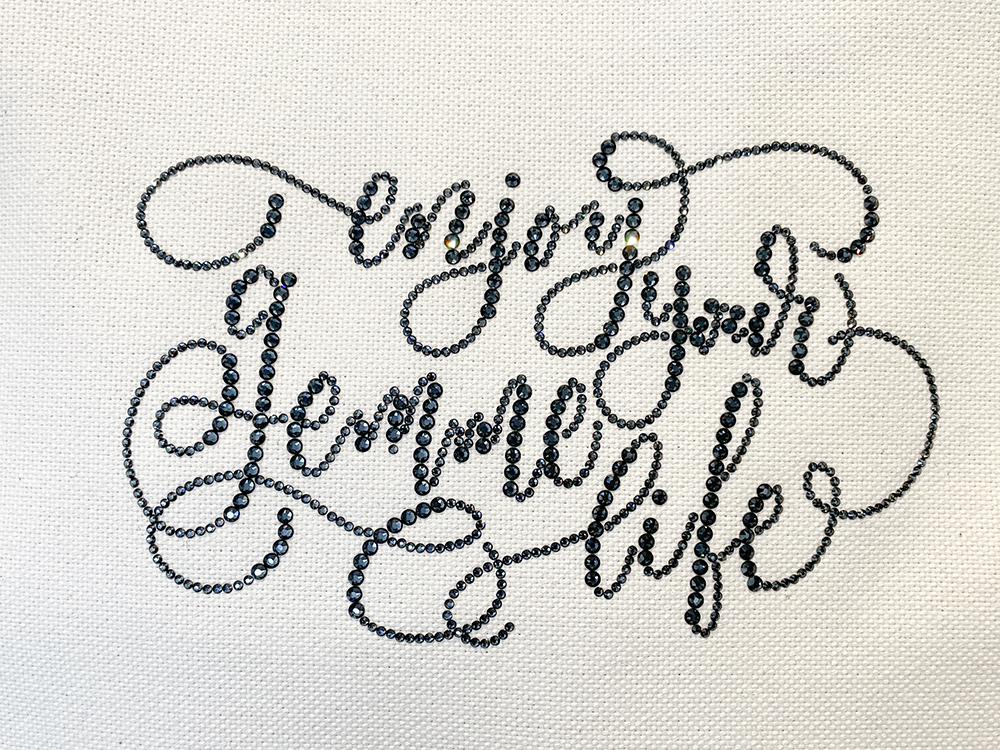 enjoy
your
gemme
life